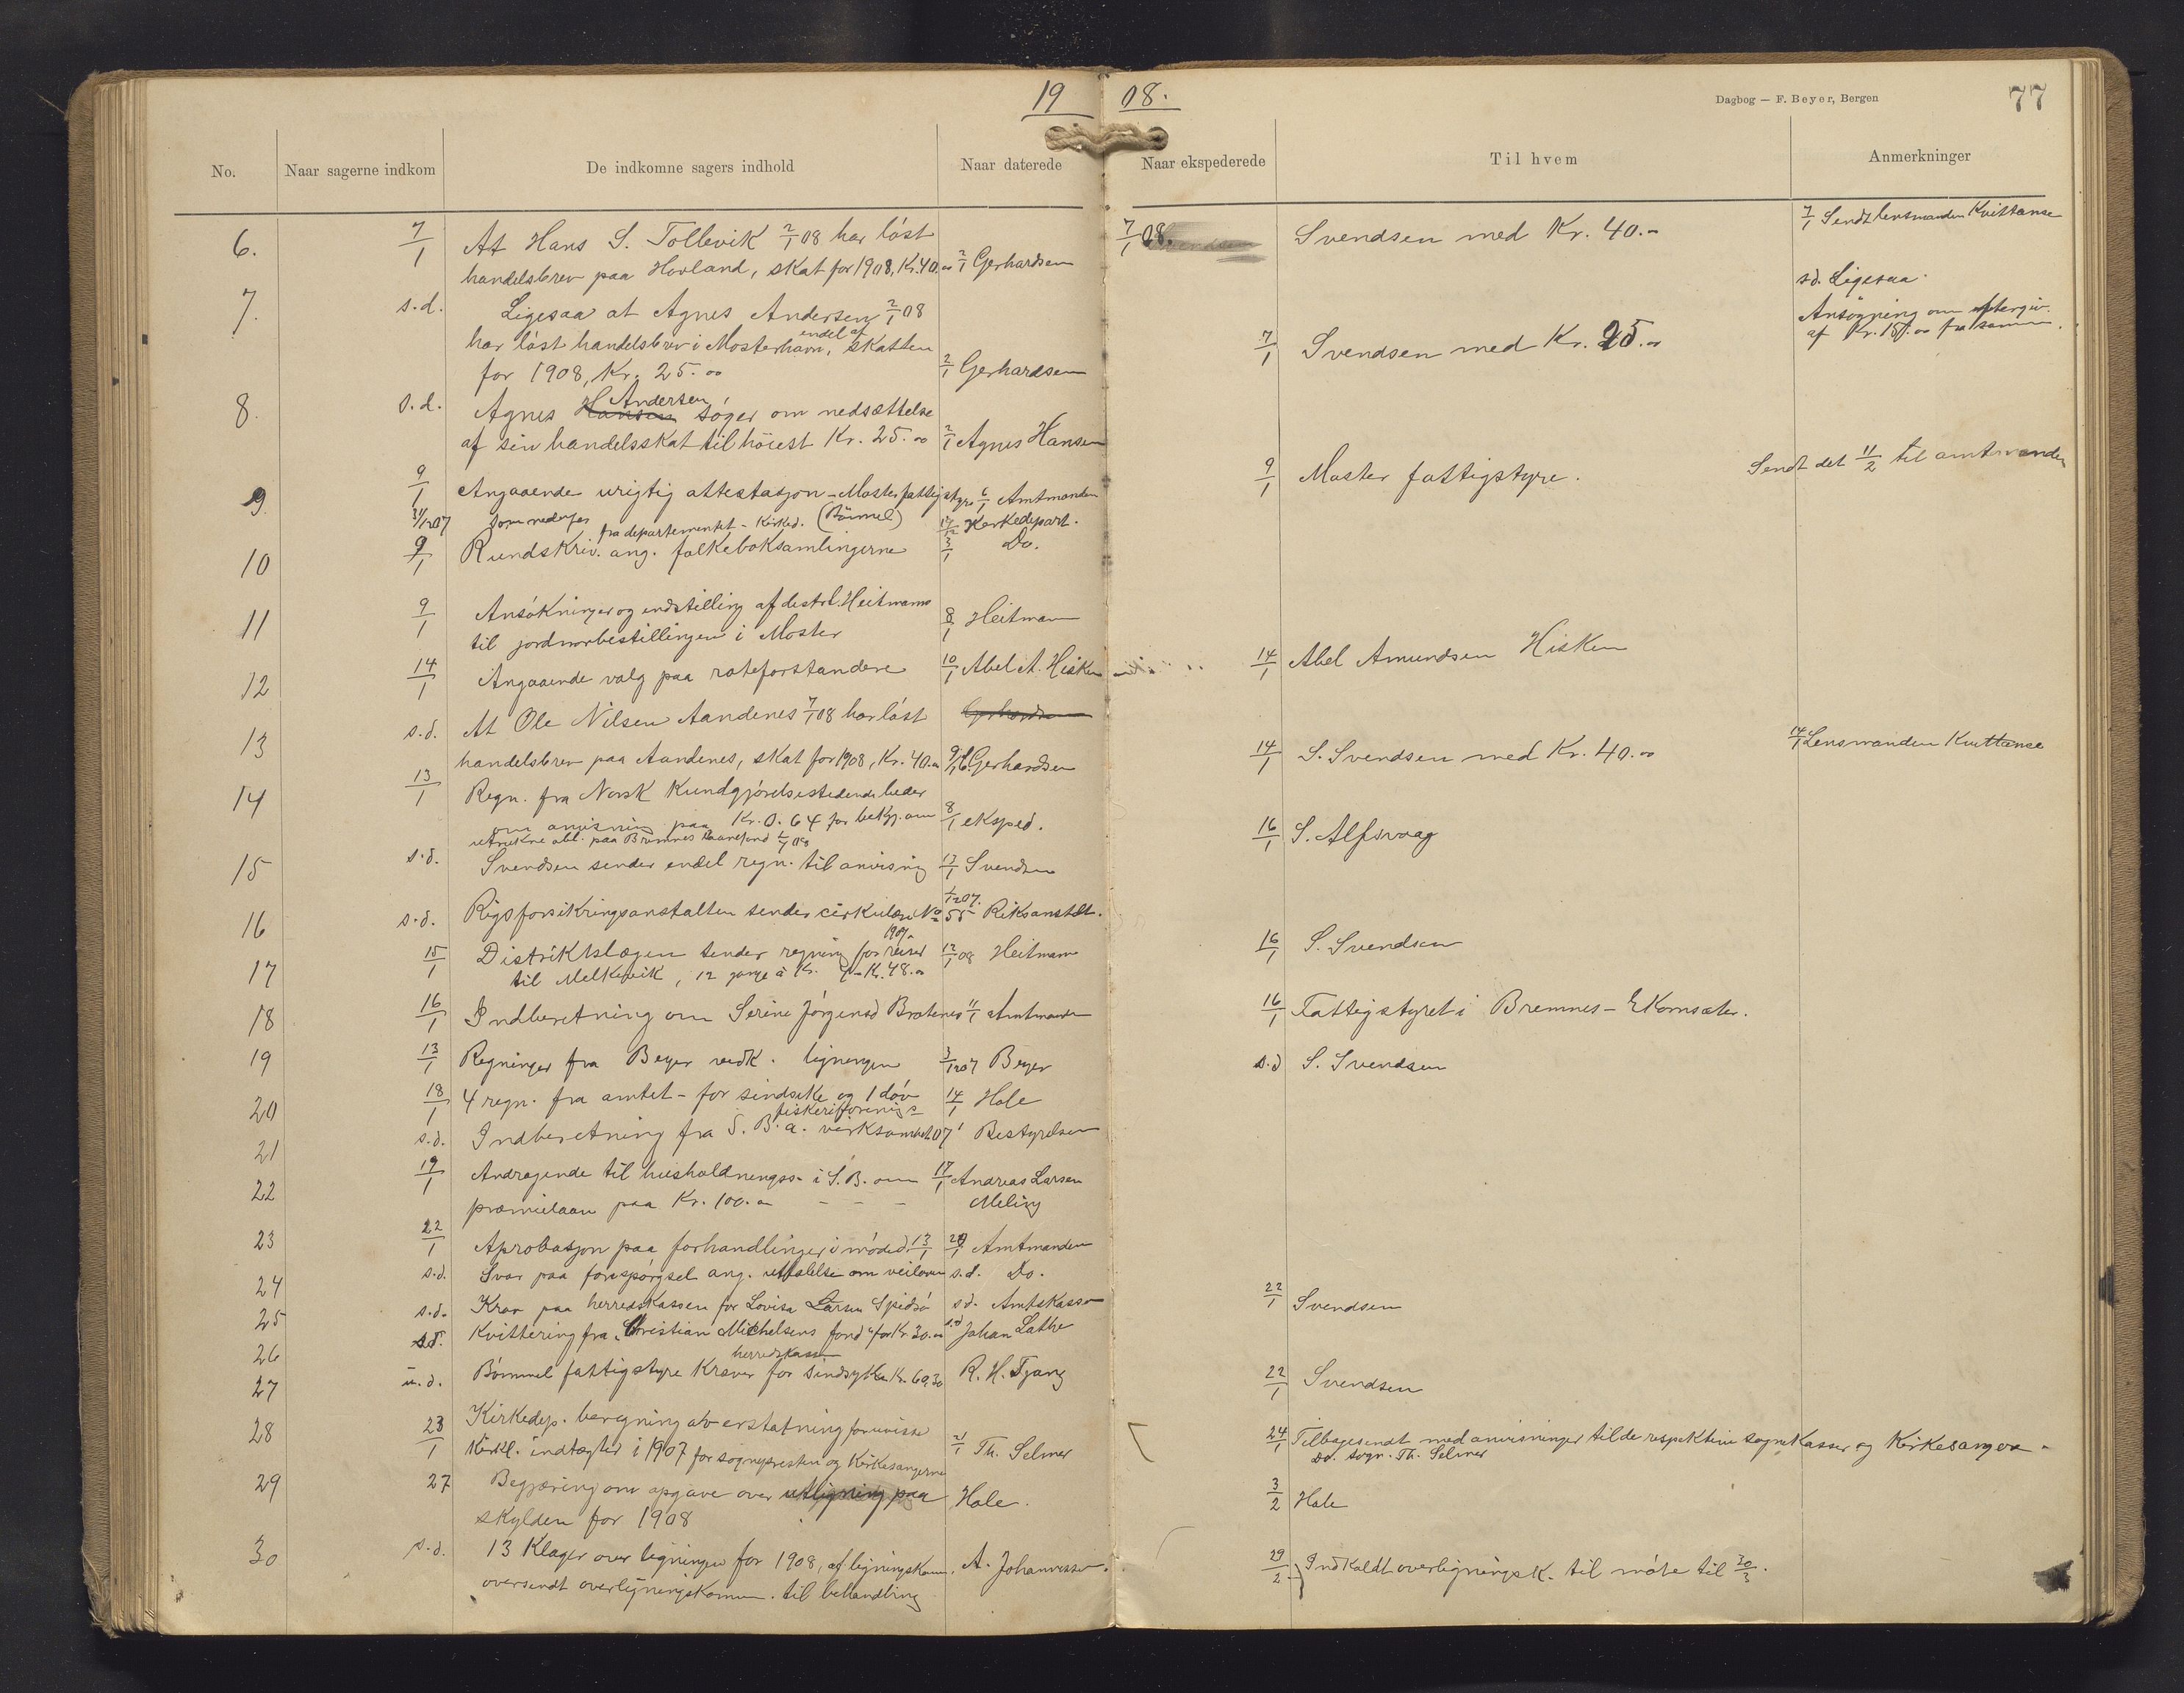 19 08.
Dagbog — F. Beyer, Bergen
77
No. Naar sagerne indkom De indkomne sagers indhold Naar daterede Naar ekspederede Til hvem Anmerkninger
6. 7/1 At Hans S. Tollevik 2/1 08 har løst 7/1 08. Svendsen med Kr. 40.- 7/1 Sendt lensmanden Kvittanse
handelsbrev paa Hovland, skat for 1908, Kr. 40.00 2/1 Gerhardsen
7. s.d. Ligesaa at Agnes Andersen 2/1 08 sd. Ligesaa
har løst handelsbrev i Mosterhavn, endel af skatten 7/1 Svendsen med Kr. 25.00 Ansøgning om eftergiv.
for 1908, Kr. 25.00 2/1 Gerhardsen af Kr. 15.00 fra samme.
8. s.d. Agnes Hansen Andersen søger om nedsættelse
af sin handelsskat til høiest Kr. 25.00 2/1 Agnes Hansen
9. 9/1 Angaaende urigtig attestasjon - Moster fattigstyre 6/1 Amtmanden 9/1 Moster fattigstyre. Sendt det 11/2 til amtmanden
31/12 07 som (Bømmel) 17/12 Kerkedepart.
10 9/1 Rundskriv. fra departementet - Kirked. ang. folkeboksamlingerne 3/1 Do.
11 9/1 Ansøkninger og indstilling af distrl. Heitmann 8/1 Heitman
til jordmorbestillingen i Moster
12 14/1 Angaaende valg paa roteforstandere 10/1 Abel A. Hisken 14/1 Abel Amundsen Hisken
13 s.d. At Ole Nilsen Aandenes 7/1 08 har løst Gerhardsen
handelsbrev paa Aandenes, skat for 1908, Kr. 40.00 9/1 Gerhardsen 14/1 S. Svendsen med Kr. 40.00 14/1 Lensmanden Kvittanse
14 13/1 Regn. fra Norsk Kundgjørelsestidende beder
om anvisning paa Kr. 0.64 for bekj. om 8/1 eksped. 16/1 S. Alfsvaag
utrukne obl. paa Bremnes
15 s.d. Svendsen sender endel regn. til anvisnig 13/1 Svendsen
16 s.d. Rigsforsikringsanstalten sender cirkulære No 55 1/12 07. Riksanstalt.
17 15/1 Distriktslægen sender regning for reiser 1907 12/1 08 Heitmann 16/1 S. Svendsen
til Melkevik, 12 gange à Kr. 4 - Kr. 48.00
18 16/1 Indberetning om Serine Jørgensd Bratenes 11/1 Amtmanden 16/1 Fattigstyret i Bremnes - Ekornsæter.
19 13/1 Regninger fra Beyer vedk. ligningen 3/12 07 Beyer s.d S. Svendsen
20 18/1 4 regn. fra amtet - for sindssyke og 1 døv 14/1 Hole
21 s.d. Indberetning fra S. B. a. fiskeriforenings virksomhet 07 Bestyrelsen
22 19/1 Andragende til husholdningss. i S. B. om 17/1 Andreas Larsen
præmielaan paa Kr. 100.00 - - - Meling
23 22/1 Aprobasjon paa forhandlinger i møded. 13/1 20/1 Amtmanden
24 s.d. Svar paa forespørgsel ang. uttalelse om veiloven s.d. Do.
25 s.d. Krav paa herredskassen for Lovisa Larsen Spidsø sd. Amtskassen 22/1 Svendsen
26 s.d. Kvittering fra "Christian Michelsens fond" for Kr. 30.00 s.d Johan Lathe
27 u.d. Bømmel fattigstyre Kræver herredskassen for sindsyke Kr. 69,30 R. H. Tjang 22/1 Svendsen
28 23/1 Kirkedep. beregning av erstatning for uvisse
kirkl. indtægter i 1907 for sognepresten og Kirkesangerne 21/1 Th. Selmer 24/1 Tilbagesendt med anvisninger til de respektive sognekasser og Kirkesangere -
Do. sogn. Th. Selmer
29 27 Begjæring om opgave over utligning paa Hole. 3/2 Hole
skylden for 1908
30 s.d. 13 Klager over ligningen for 1908, af ligningskomm. A. Johannessen. 29/2 Indkaldt overligningsk. til møte til 30/3.
oversendt overligningskomm. til behandling